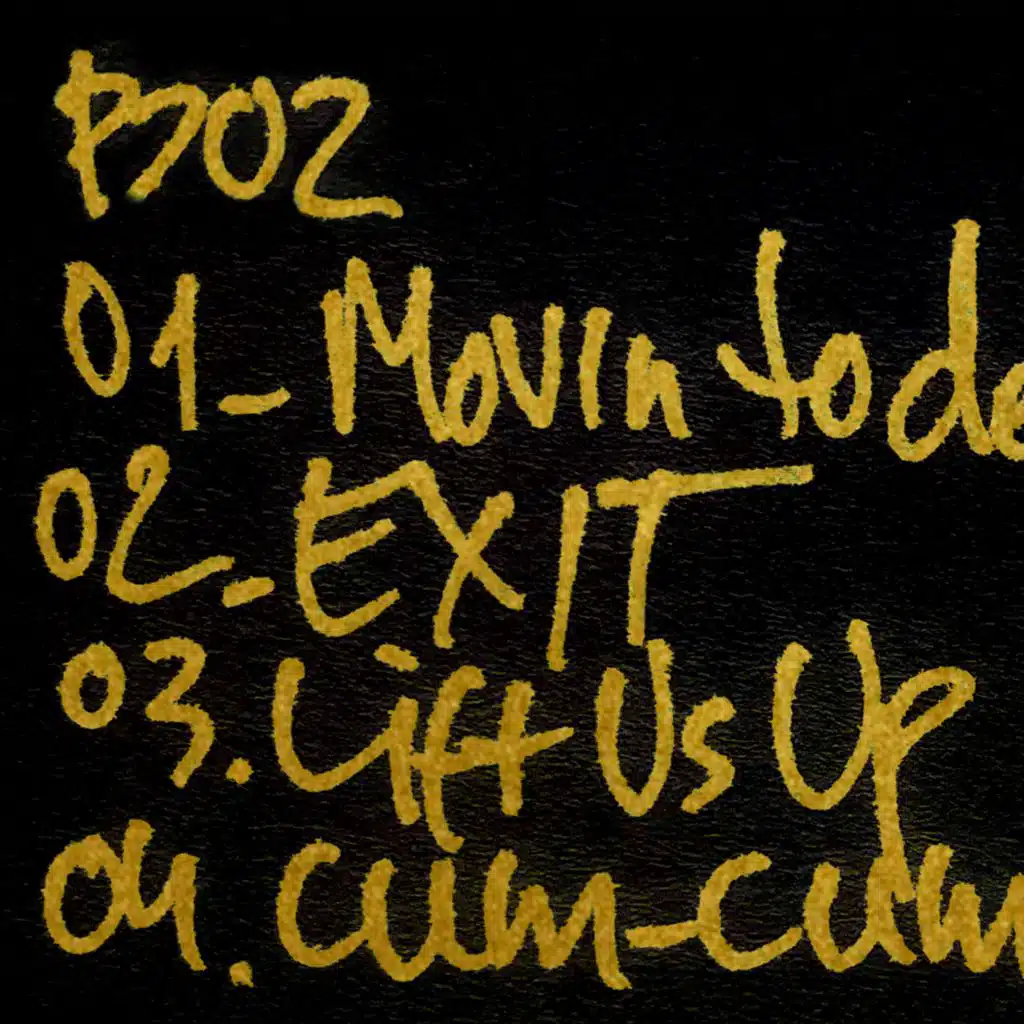 P702
01_ Movin to de
02_ EXIT
03. Lift Us Up
04. CUM-CUM